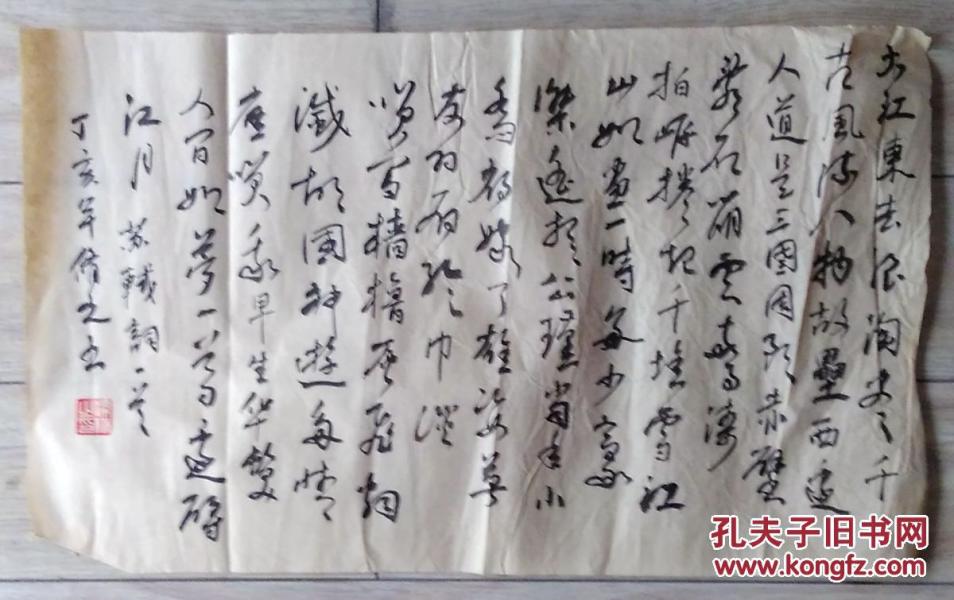 大江東去浪淘尽千
古風流人物故壘西边
人道是三國周郎赤壁
乱石崩雲惊涛
拍岸捲起千堆雪江
山如画一時多少豪
傑遥想公瑾當年小
喬初嫁了雄姿英
发羽扇纶巾谈
笑间樯橹灰飞烟
滅故國神遊多情
應笑我早生华髮
人间如夢一尊还酹
江月 苏軾詞一首
丁亥年 之书
孔夫子旧书网
www.kongfz.com